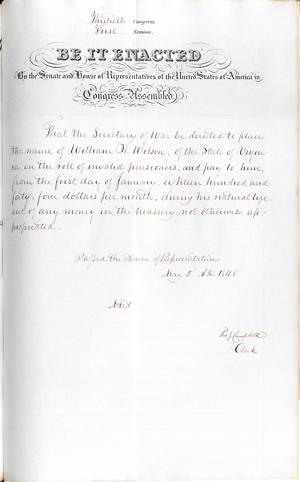 Thirtieth Congress
First Session.
BE IT ENACTED
By the Senate and House of Representatives of the United States of America in
Congress Assembled,
That the Secretary of War be directed to place
the name of William H. Wilson, of the State of Virgin-
ia on the roll of invalid pensioners, and pay to him,
from the first day of January, eighteen hundred and
forty, four dollars per month, during his natural life,
out of any money in the treasury not otherwise ap-
propriated.
Passed the House of Representatives
May 5th 1848
Attest
Tho J Campbell
Clerk